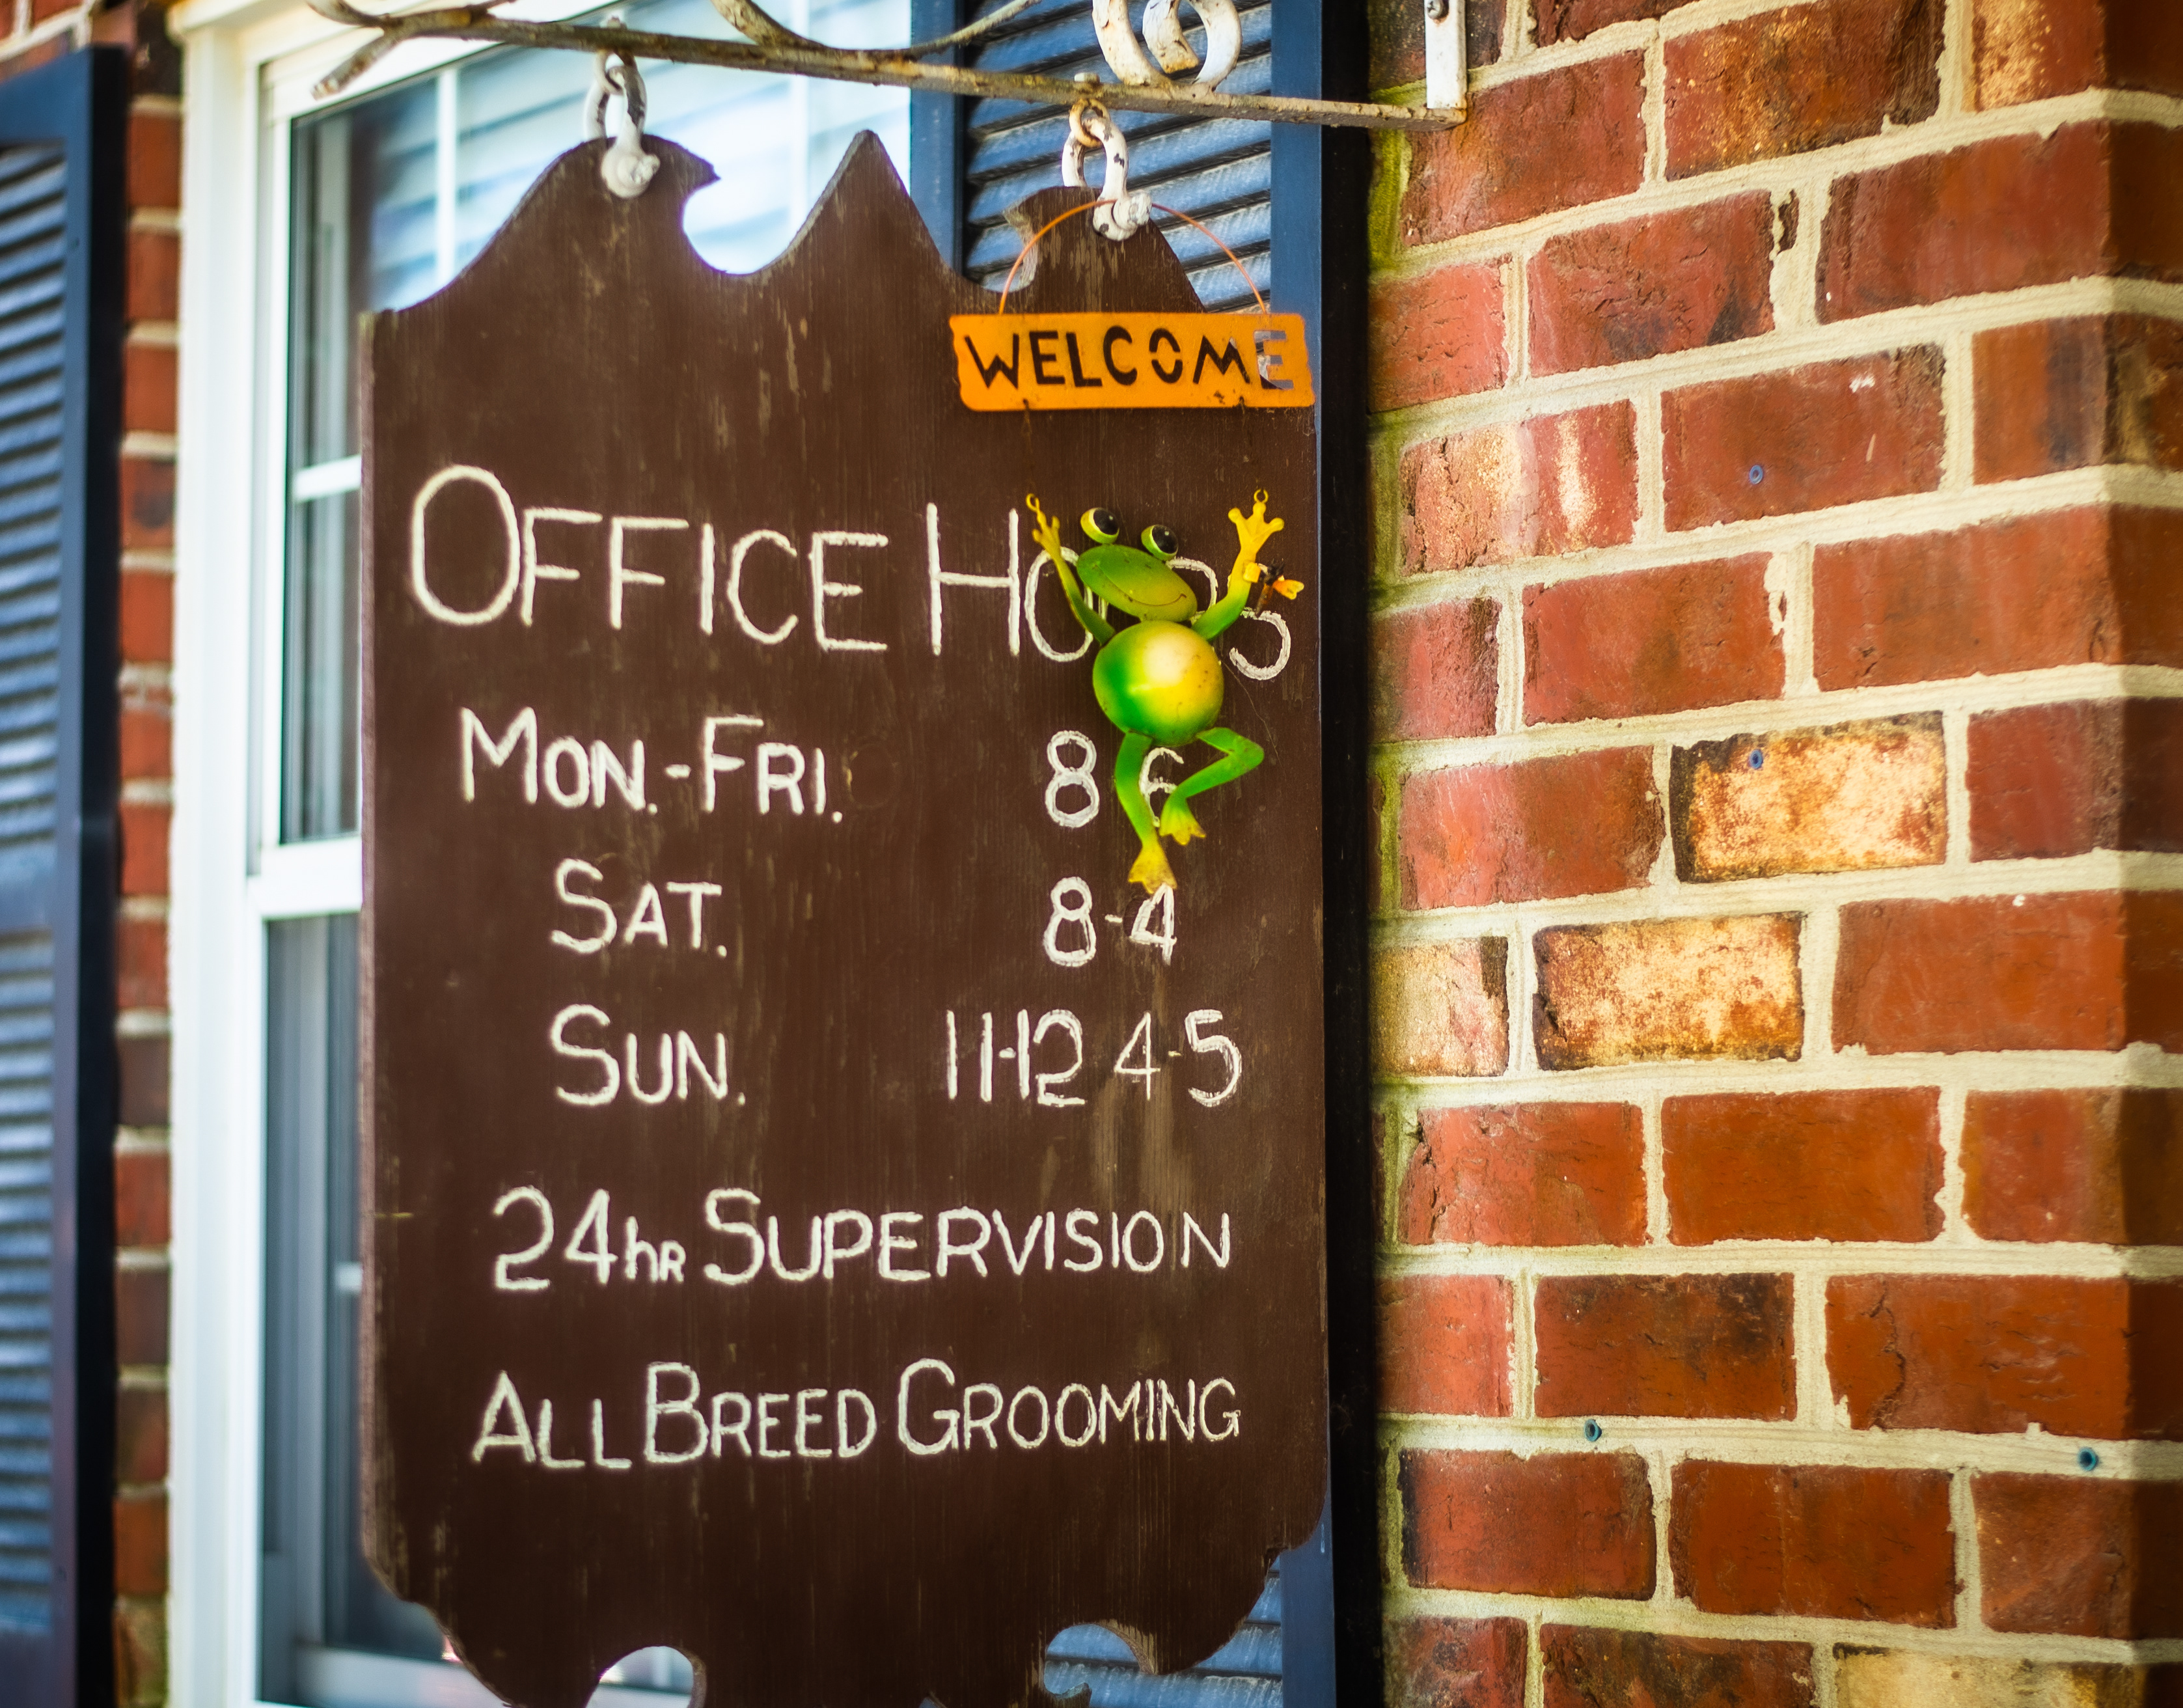 WELCOME
OFFICE HOURS
MON.-FRI. 8-6
SAT. 8-4
SUN. 11-12 4-5
24hR SUPERVISION
ALL BREED GROOMING